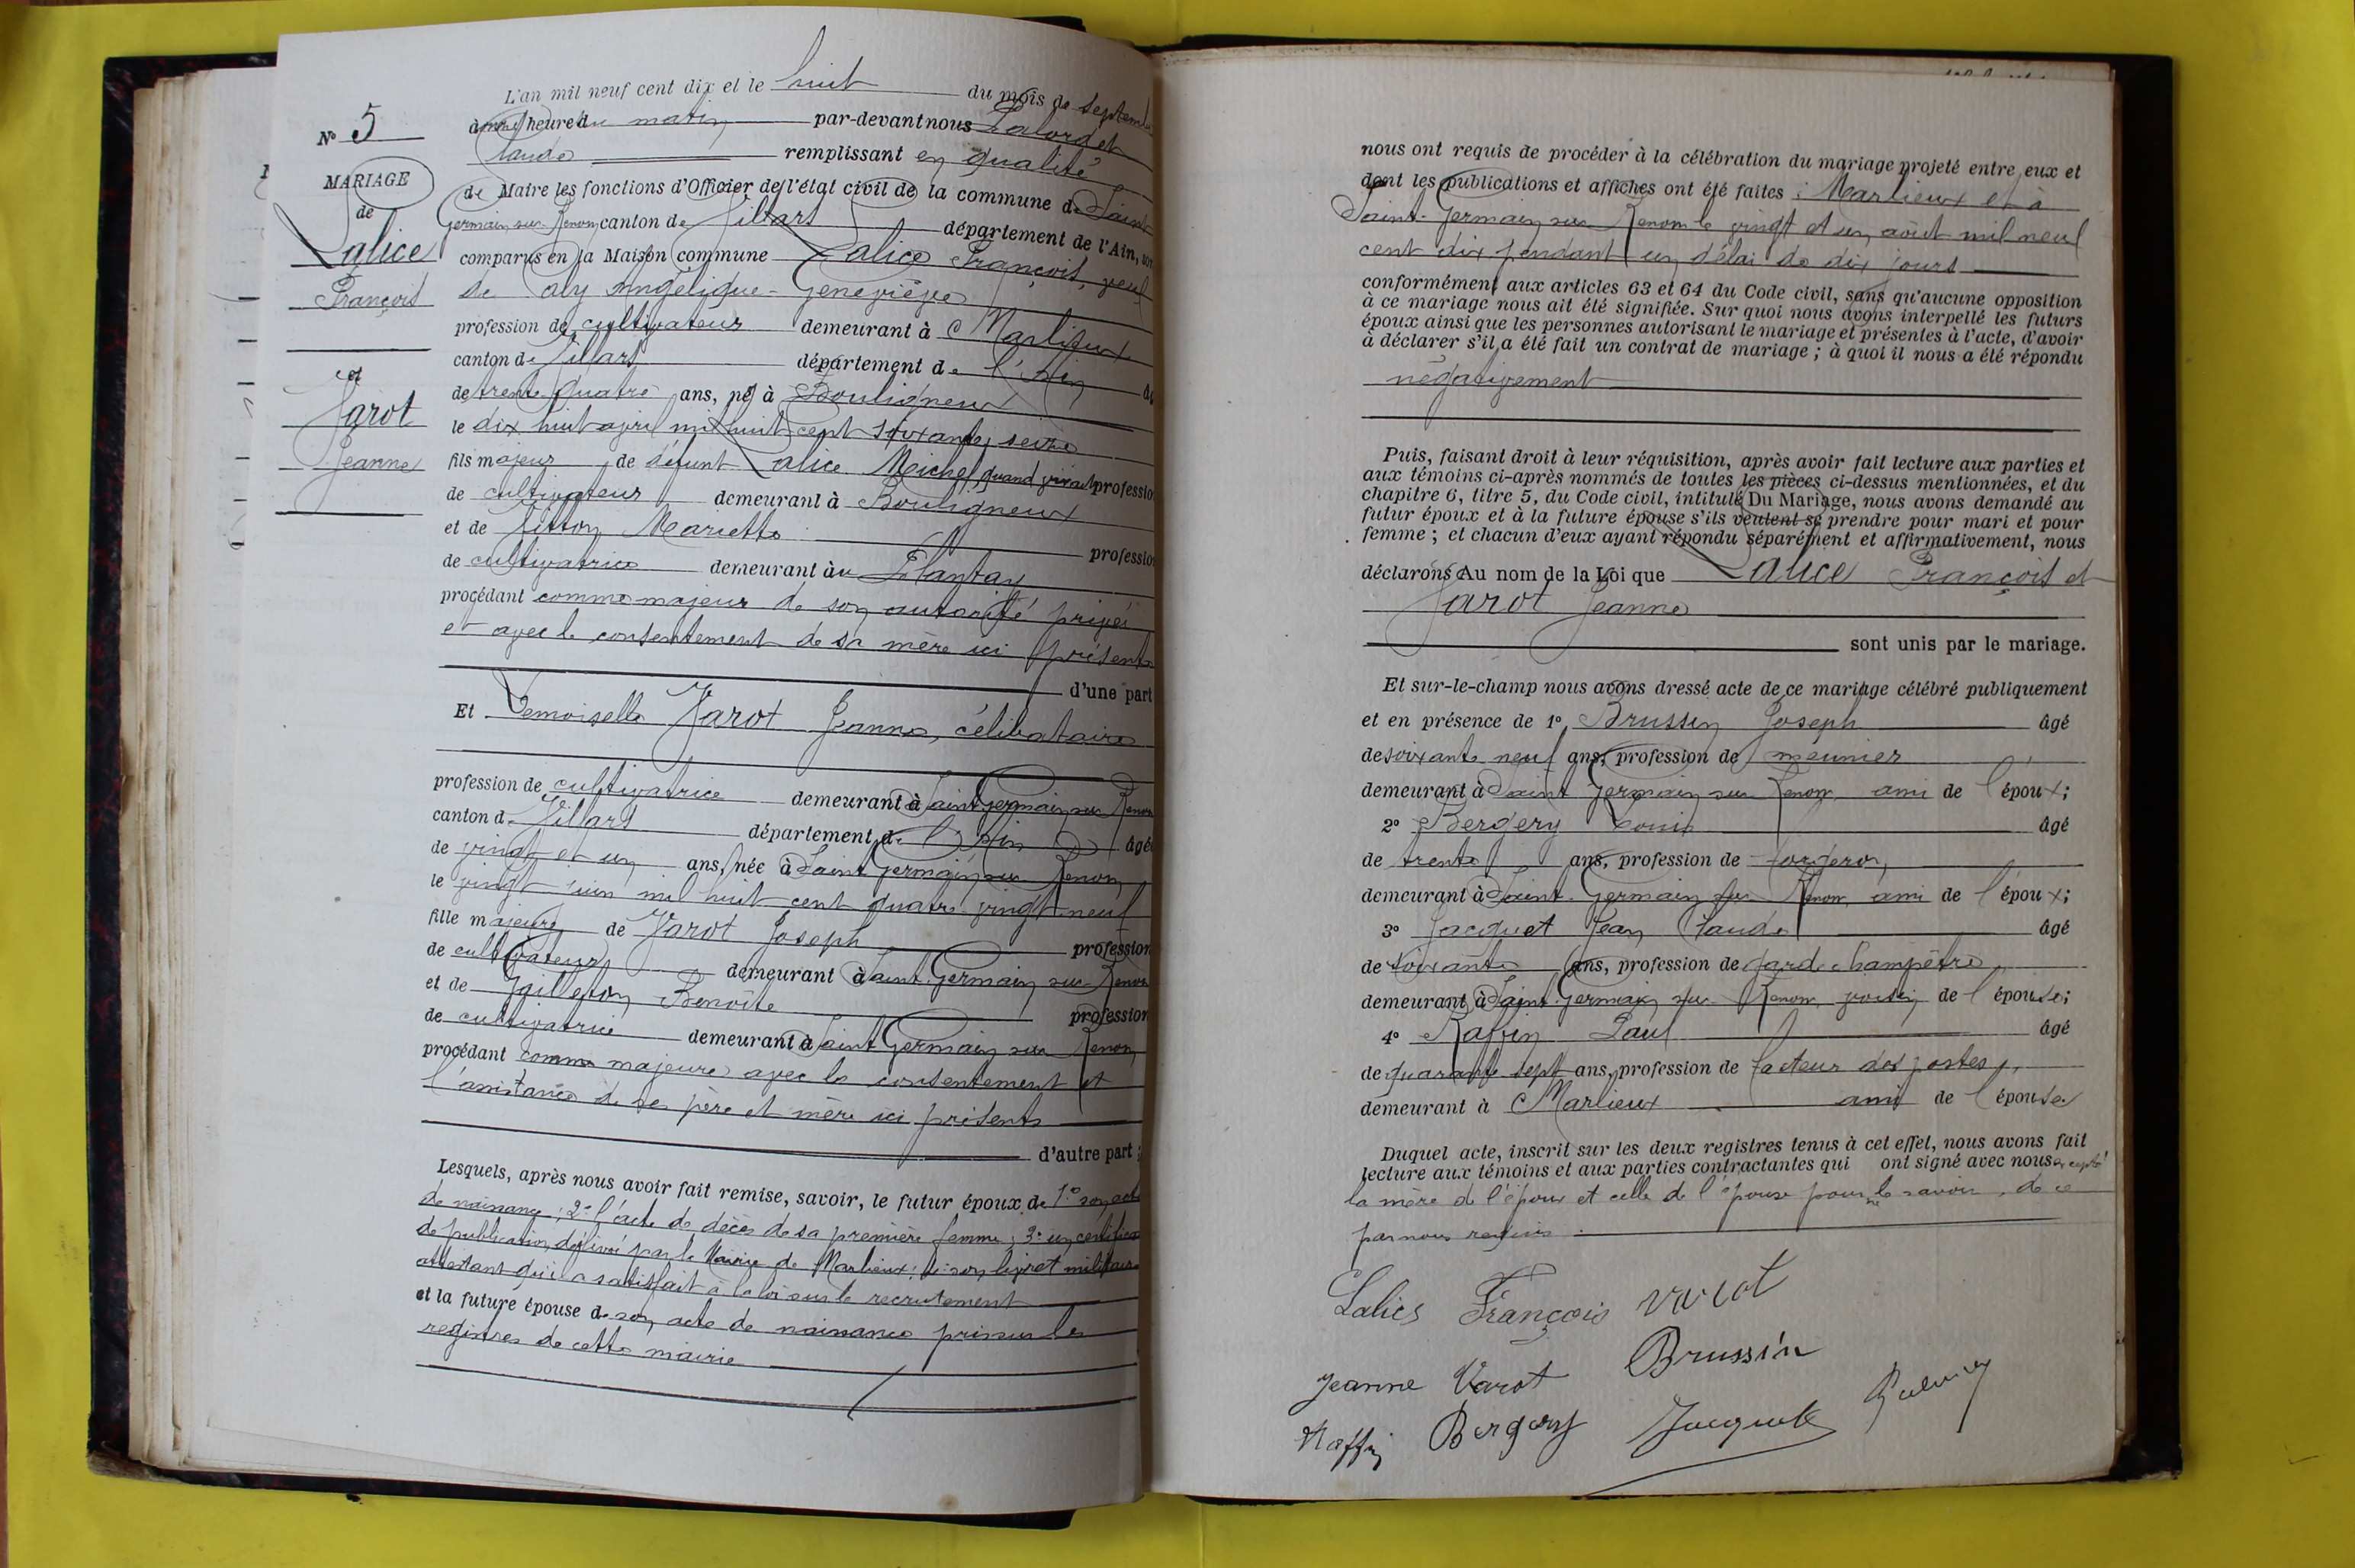 L'an mil neuf cent dix et le huit du mois de septem
heure du matin par-devant nous
Claude remplissant en qualité
de Maire les fonctions d'Officier de l'état civil de la commune de Saint
Germain sur Renon canton de Villars département de l'Ain,
comparus en la Maison commune Lalice François, veuf
de Angélique-Geneviève
profession de cultivateur demeurant à Marlieux
canton de Villars département de l'Ain
de trente quatre ans, né à Bouligneux
le dix huit avril mil huit cent soixante seize
fils majeur de défunt Lalice Michel, quand vivait profession
de cultivateur demeurant à Bouligneux
et de Marietta profession
de cultivatrice demeurant au Plantay
procédant comme majeur de son autorité privée
et avec le consentement de sa mère ici présente
d'une part
Et Demoiselle Varot Jeanne, célibataire
profession de cultivatrice demeurant à Saint Germain sur Renon
canton de Villars département de l'Ain âgée
de vingt et un ans, née à Saint Germain sur Renon
le vingt juin mil huit cent quatre vingt neuf
fille majeure de Varot Joseph profession
de cultivateur demeurant à Saint Germain sur Renon
et de Benoîte profession
de cultivatrice demeurant à Saint Germain sur Renon
procédant comme majeure avec le consentement et
l'assistance de ses père et mère ici présents
d'autre part ;
Lesquels, après nous avoir fait remise, savoir, le futur époux de 1° son acte
de naissance ; 2° l'acte de décès de sa première femme ; 3° un certificat
de publication délivré par le Maire de Marlieux ; 4° son livret militaire
attestant qu'il a satisfait à la loi sur le recrutement
et la future épouse de son acte de naissance pris sur les
registres de cette mairie
N° 5
MARIAGE
de
Lalice
François
et
Varot
Jeanne
nous ont requis de procéder à la célébration du mariage projeté entre eux et
dont les publications et affiches ont été faites à Marlieux et à
Saint-Germain sur Renon le vingt et un août mil neuf
cent dix pendant un délai de dix jours
conformément aux articles 63 et 64 du Code civil, sans qu'aucune opposition
à ce mariage nous ait été signifiée. Sur quoi nous avons interpellé les futurs
époux ainsi que les personnes autorisant le mariage et présentes à l'acte, d'avoir
à déclarer s'il a été fait un contrat de mariage ; à quoi il nous a été répondu
négativement
Puis, faisant droit à leur réquisition, après avoir fait lecture aux parties et
aux témoins ci-après nommés de toutes les pièces ci-dessus mentionnées, et du
chapitre 6, titre 5, du Code civil, intitulé Du Mariage, nous avons demandé au
futur époux et à la future épouse s'ils veulent se prendre pour mari et pour
femme ; et chacun d'eux ayant répondu séparément et affirmativement, nous
déclarons Au nom de la Loi que Lalice François et
Varot Jeanne
sont unis par le mariage.
Et sur-le-champ nous avons dressé acte de ce mariage célébré publiquement
et en présence de 1° Brussin Joseph âgé
de soixante neuf ans, profession de meunier
demeurant à Saint Germain sur Renon ami de l'époux ;
2° Bergery Louis âgé
de trente ans, profession de forgeron,
demeurant à Saint Germain sur Renon ami de l'époux ;
3° Jacquet Jean Claude âgé
de soixante ans, profession de garde champêtre
demeurant à Saint Germain sur Renon voisin de l'épouse ;
4° Raffin Paul âgé
de quarante sept ans, profession de facteur des postes,
demeurant à Marlieux ami de l'épouse
Duquel acte, inscrit sur les deux registres tenus à cet effet, nous avons fait
lecture aux témoins et aux parties contractantes qui ont signé avec nous excepté
la mère de l'époux et celle de l'épouse pour ne le savoir, de ce
par nous requis.
Lalice François Varot
Jeanne Varot Brussin
Raffin Bergery Jacquet